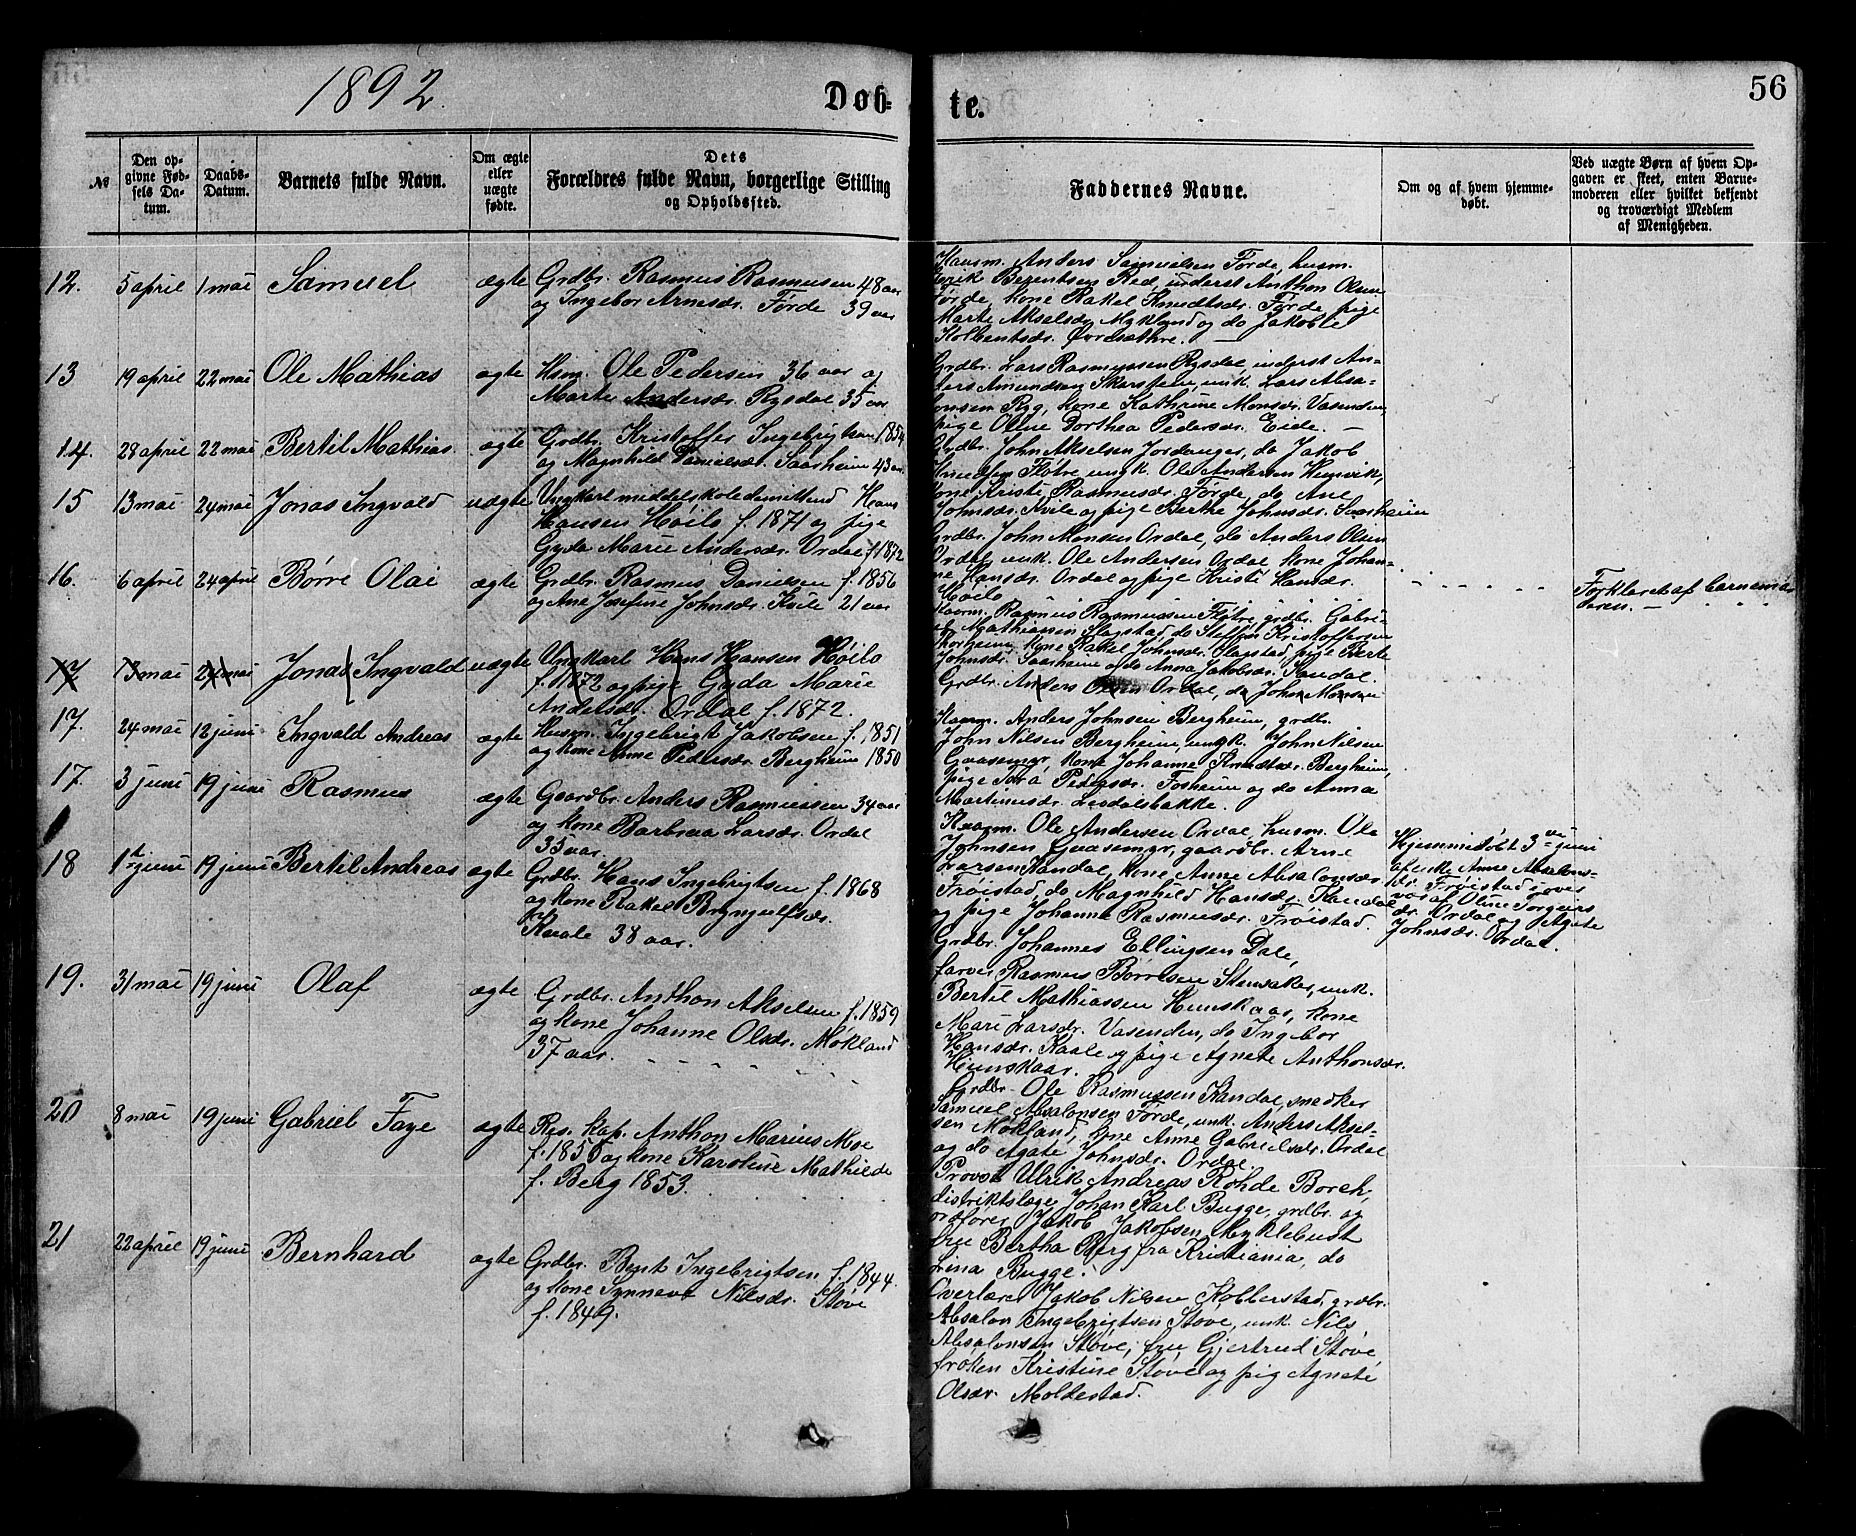 1892.
Døb=
te.
56
№
Den op-
givne Fød-
sels Da-
tum.
Daabs-
Datum.
Barnets fulde Navn.
Om ægte
eller
uægte
fødte.
Dets
Forældres fulde Navn, borgerlige Stilling
og Opholdssted.
Faddernes Navne.
Om og af hvem hjemme-
døbt.
Ved uægte Børn af hvem Op-
gaven er skeet, enten Barne-
moderen eller hvilket bekjendt
og troværdigt Medlem
af Menigheden.
12. 5 april 1 mai Samuel ægte Grdbr. Rasmus Rasmusen 48 aar
og Ingebor Arnesdr. Førde 39 aar
Anders Samuelsen Førde, husm.
Berentsen Red, inderst Anthon Olsen
Førde, kone Rakel Knudtsdr. Førde, pige
Marte Akselsdr Mykland og do Jakobie
Kolbentsdr.
13 19 april 22 mai Ole Mathias ægte Hsm. Ole Pedersen 36 aar og
Marte Andersdr. Rysdal 35 aar
Grdbr. Lars Rasmussen Rysdal, inderst An-
ders Amundsen Skarstein, unk. Lars Absa-
lonsen Ryg, kone Kathrine Monsdr. Vasenden
pige Oline Dorthea Pedersdr. Eide. —
14. 28 april 22 mai Bertil Mathias ægte Grdbr. Kristoffer Ingebrigtsen 1854
og Magnhild Danielsdr. Saasheim 43 aar
Grdbr. John Akselsen Jordanger, do Jakob
Knudsen Fløtre, ungk. Ole Andersen Hunvik,
kone Kristi Rasmusdr. Førde, do Ane
Johnsdr. Kvile og pige Berthe Johnsdr. Saasheim
15 13 mai 24 mai Jonas Ingvald uægte Ungkarl middelskoledimittend Hans
Hansen Høilo f. 1871 og pige
Gyda Marie Andersdr. Ordal f. 1872
Grdbr. John Monsen Ordal, do Anders Olsen
Ordal, unk. Ole Andersen Ordal kone Johan-
ne Hansdr. Ordal og pige Kristi Hansdr.
Høilo
Forklaret af barnemo-
deren. —
16. 6 april 24 april Børre Olai ægte Grdbr. Rasmus Danielsen f. 1856
og Ane Josefine Johnsdr. Kvile 21 aar
Rasmus Rasmussen Fløtre, grdbr. Gabri-
el Mathiassen Slagstad, do Steffen Kristoffersen
kone Rakel Johnsdr. Slagstad, pige Berte
Johnsdr. Saasheim og do Anna Jakobsdr. Kandal.
17 13 mai 24 mai Jonas Ingvald uægte Ungkarl Hans Hansen Høilo
f. 1872 og pige Gyda Marie
Andersdr. Ordal f. 1872.
Grdbr. Anders Olsen Ordal, do John Monsen
17. 24 mai 12 juni Ingvald Andreas ægte Husm. Ingebrigt Jakobsen f. 1851
og kone Anne Pedersdr. Bergheim 1850
Anders Johnsen Bergheim, grdbr.
John Nilsen Bergheim, ungk. John Nilsen
Gaasemyr, kone Johanne Knudtsdr. Bergheim,
pige Tora Pedersdr. Fosheim og do Anna
Martinusdr. Løsdalsbakke.
17. 3 juni 19 juni Rasmus ægte Gaardbr. Anders Rasmussen 34 aar
og kone Barbraa Larsdr. Ordal
35 aar.
Ole Andersen Ordal, husm. Ole
Johnsen Gaasemyr, gaardbr. Arne
Larsen Kandal, kone Anne Absalonsdr.
Frøistad, do Magnhild Hansdr. Kandal
og pige Johanne Rasmusdr. Frøistad.
Hjemmedøbt 3die juni
af enke Anne Absalons-
dr. Frøistad i over
vær af Oline Torgeirs
dr. Ordal og Agate
Johnsdr. Ordal.
18 1ste juni 19 juni Bertil Andreas ægte Grdbr. Hans Ingebrigtsen f. 1868
og kone Rakel Brynjulfsdr.
Kvale 38 aar.
Grdbr. Johannes Ellingsen Dale,
farver Rasmus Børresen Stensaker, unk.
Bertil Mathiassen Hunskaar, kone
Mari Larsdr. Vasenden, do Ingebor
Hansdr. Kvale og pige Agnete Anthonsdr.
Hunskaar.
19. 31 mai 19 juni Olaf ægte Grdbr. Anthon Akselsen f. 1859
og kone Johanne Olsdr. Mykland
37 aar.
Grdbr. Ole Rasmussen Kandal, snedker
Samuel Absalonsen Førde, unk. Anders Aksel-
sen Mykland, kone Anne Gabrielsdr. Ordal
og do Agate Johnsdr. Ordal.
20 8 mai 19 juni Gabriel Faye ægte Res. kap. Anthon Marius Moe
f. 1855 og kone Karoline Mathilde
f. Berg 1853.
Provst Ulrik Andreas Rohde Borch,
distriktslæge Johan Karl Bugge, grdbr. og
ordfører Jakob Jakobsen Myklebust
fru Bertha Berg fra Kristiania, do
Lina Bugge.
21 22 april 19 juni Bernhard ægte Grdbr. Bent Ingebrigtsen f. 1844.
og kone Synneve Nilsdr. Støve
f. 1849.
Overlærer Jakob Nilsen Kobberstad, grdbr.
Absalon Ingebrigtsen Støve, unk. Nils
Absalonsen Støve, fru Gjertrud Støve
frøken Kristine Støve og pig Agnete
Olsdr. Moldestad.